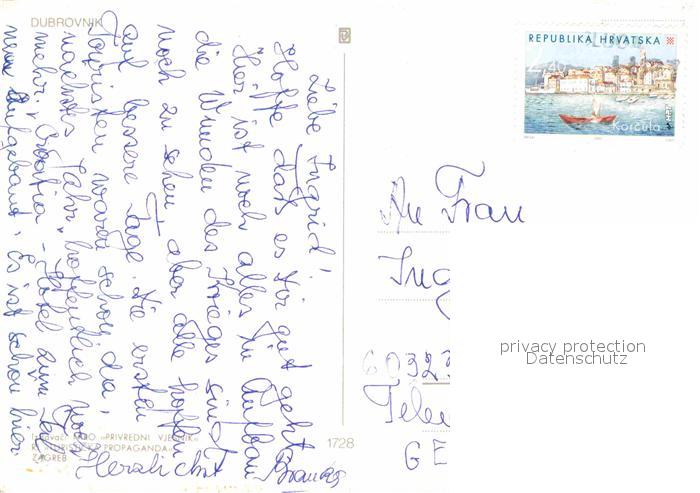 DUBROVNIK
Liebe Ingrid!
Hoffe daß es Dir gut geht
Hier ist noch alles im Aufbau
die Wunden des Krieges sind
noch zu sehen aber alle hoffen
auf bessere Tage. Die ersten
Touristen waren schon da,
nächstes Jahr hoffentlich noch
mehr. Croatia - Hotel zum Teil
neu aufgebaut. Es ist schon hier
Herzlichst
Izdavač: NIRO »PRIVREDNI VJESNIK«
PROPAGANDA«
ZAGREB
1728
REPUBLIKA HRVATSKA
Korčula
An Frau
Ing
60323
GE
privacy protection
Datenschutz